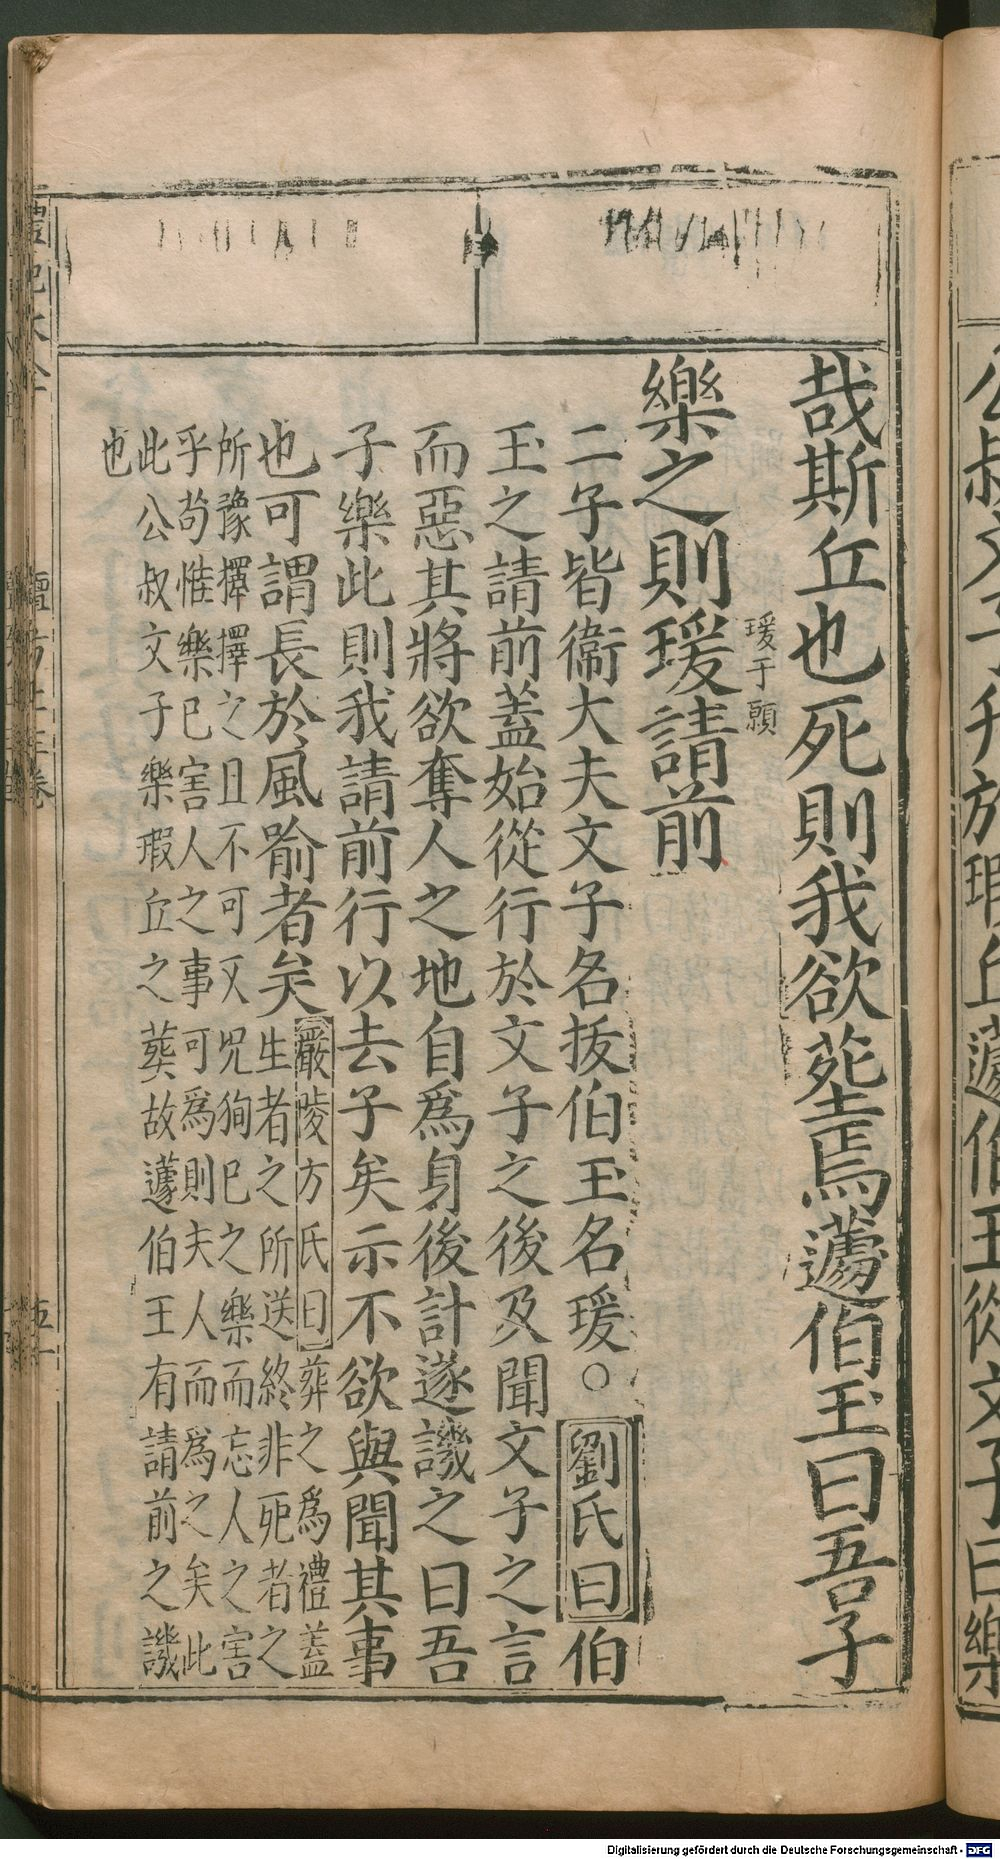 公叔文子升於瑕丘蘧伯玉從文子曰樂
哉斯丘也死則我欲塟焉蘧伯玉曰吾子
瑗于願
樂之則瑗請前
二子皆衞大夫文子名拔伯玉名瑗○劉氏曰伯
玉之請前蓋始從行於文子之後及聞文子之言
而惡其將欲奪人之地自爲身後計遂譏之曰吾
子樂此則我請前行以去子矣示不欲與聞其事
也可謂長於風喻者矣
嚴陵方氏曰葬之爲禮蓋
生者之所送終非死者之
所豫擇擇之且不可又況狥已之樂而忘人之害
乎茍惟樂已害人之事可爲則夫人而爲之矣此
此公叔文子樂瑕丘之葬故蘧伯王有請前之譏
也
禮記大全
檀弓上三卷
五十
Digitalisierung gefördert durch die Deutsche Forschungsgemeinschaft - DFG